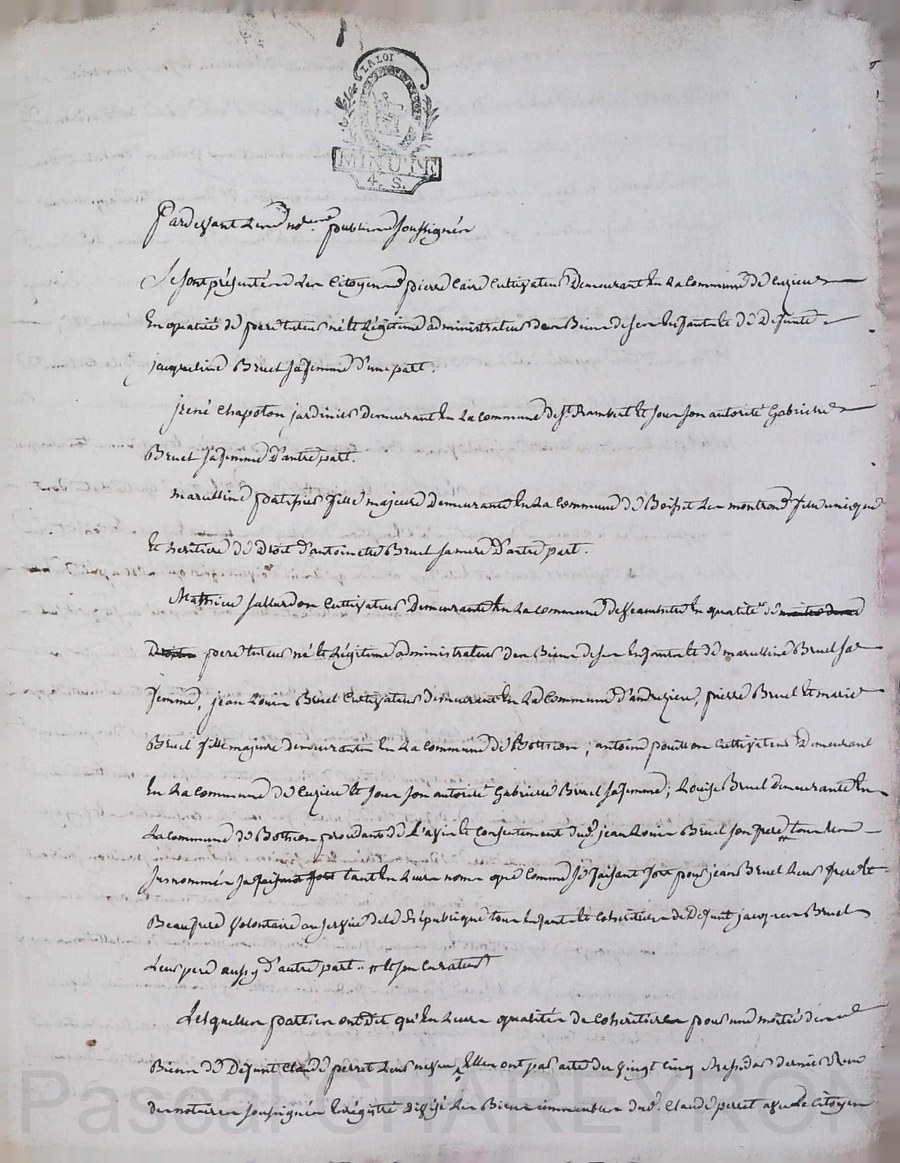 LA LOI
MINUTE
4. S.
Pardevant Les no.res publics soussignés
Se sont présentés Les Citoyens pierre Caire Cultivateur Demeurant En La Commune De Cuzieu
En qualité De pere tuteur né et Légitime administrateur Des Biens de ses Enfants et De Defunte
jacqueline Bruel sa femme D'une part.
jrené Chapoton jardinier Demeurant En La Commune de St Rambert et sous son autorité Gabrielle
Bruel sa femme D'autre part.
marcelline fille majeure Demeurante En La Commune De Boisset Les montrond fille unique
Et heritiere De Droit d'antoinette Bruel sa mere D'autre part.
Mathieu sallardon Cultivateur Demeurant En La Commune de En qualité De
pere tuteur né et Légitime administrateur Des Biens de ses Enfants et De marcelline Bruel sa
femme, jean Louis Bruel Cultivateur demeurant En La Commune d'andrezieu, pierre Bruel et marie
Bruel fille majeure demeurants En La Commune De Bothéon ; antoine pouillon Cultivateur Demeurant
En La Commune De Cuzieu et sous son autorité Gabrielle Bruel sa femme ; Louise Bruel demeurante En
La Commune De Bothéon procedante De L'avis et Consentement dud. jean Louis Bruel son frere tous Les
susnommés tant En Leurs noms que Comme se faisant fort pour jean Bruel Leur frere et
Beaufrere Volontaire au service de la République tous Enfants et Coheritiers de Defunt jacques Bruel
Leur pere aussy d'autre part.. # et son Curateur
Lesquelles parties ont Dit qu'En Leurs qualités de Coheritiers pour une moitié des
Biens De Defunt Claude perret Leur neveu, Elles ont par acte du Vingt Cinq Messidor dernier
des notaires soussignés Enregistré Divisé Les Biens immeubles dud. Claude perret avec Le Citoyen
Pascal CHAREYRON